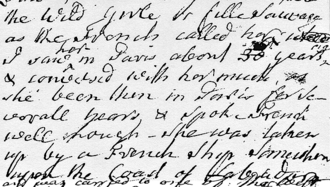 the Wild Girle or fille Sauvage
as the French called her
I saw her in Paris about years
& convers'd with her much,
she been then in Paris for se-
verall years & spoke French
well enough - she was taken
up by a French Ship somewhere
upon the Coast of
and was carried to one of